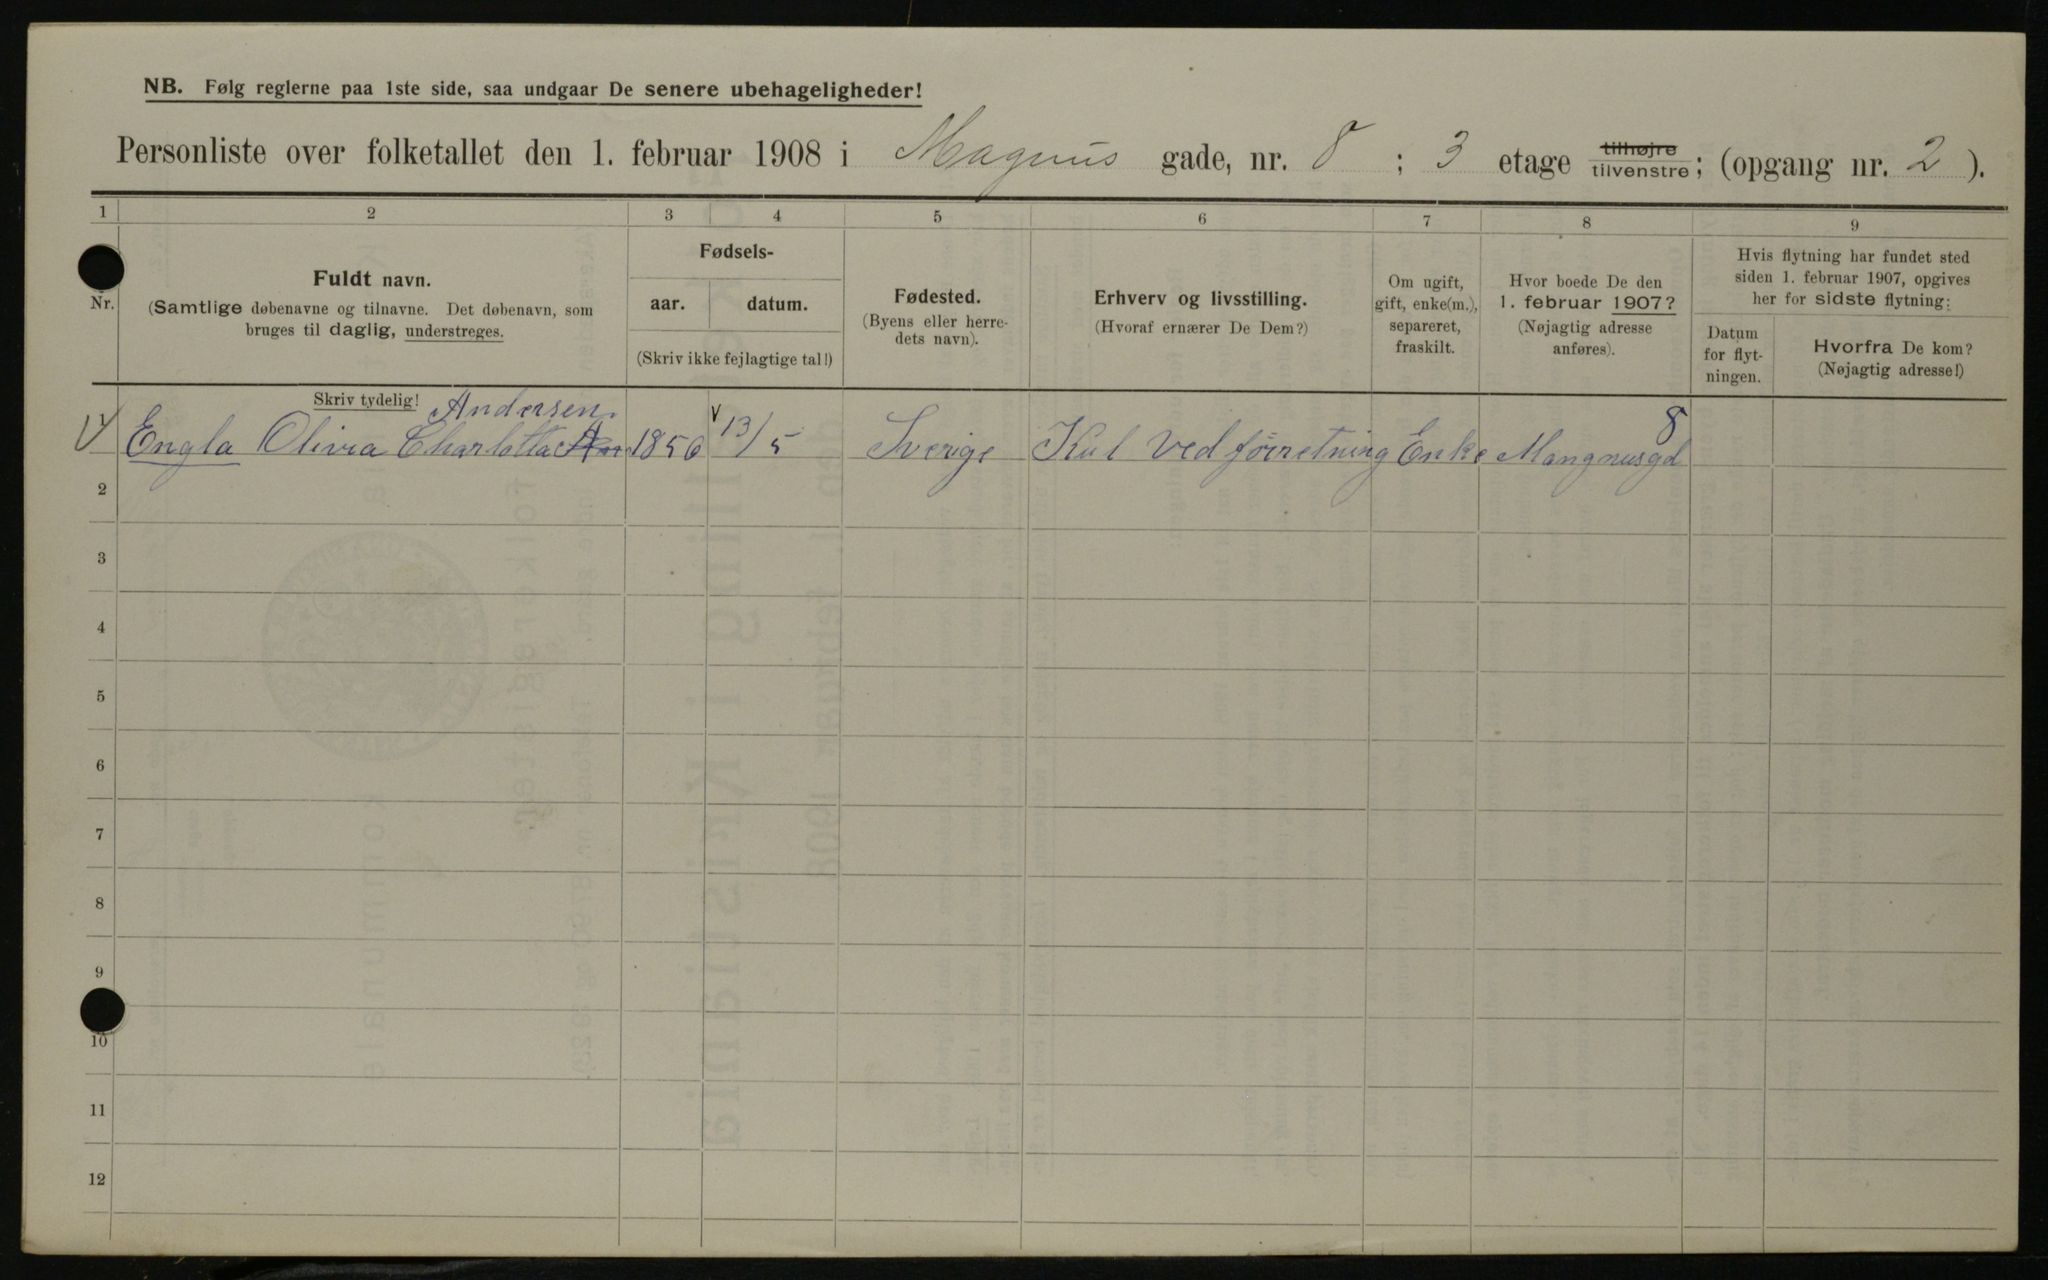 NB. Følg reglerne paa 1ste side, saa undgaar De senere ubehageligheder!
Personliste over folketallet den 1. februar 1908 i Magnus gade, nr. 8 ; 3 etage tilhøjre tilvenstre; (opgang nr. 2 ).
1 2 3 4 5 6 7 8 9
Nr.
Fuldt navn.
(Samtlige døbenavne og tilnavne. Det døbenavn, som
bruges til daglig, understreges.
Fødsels-
aar. datum.
(Skriv ikke fejlagtige tal!)
Fødested.
(Byens eller herre-
dets navn).
Erhverv og livsstilling.
(Hvoraf ernærer De Dem?)
Om ugift,
gift, enke(m.),
separeret,
fraskilt.
Hvor boede De den
1. februar 1907?
(Nøjagtig adresse
anføres).
Hvis flytning har fundet sted
siden 1. februar 1907, opgives
her for sidste flytning:
Datum
for flyt-
ningen.
Hvorfra De kom?
(Nøjagtig adresse!)
Skriv tydelig!
Andersen 8
1 Engla Olivia Charlotta An 1856 13/5 Sverige Kul Ved förretning Enke Mangnusgd
2
3
4
5
6
7
8
9
10
11
12